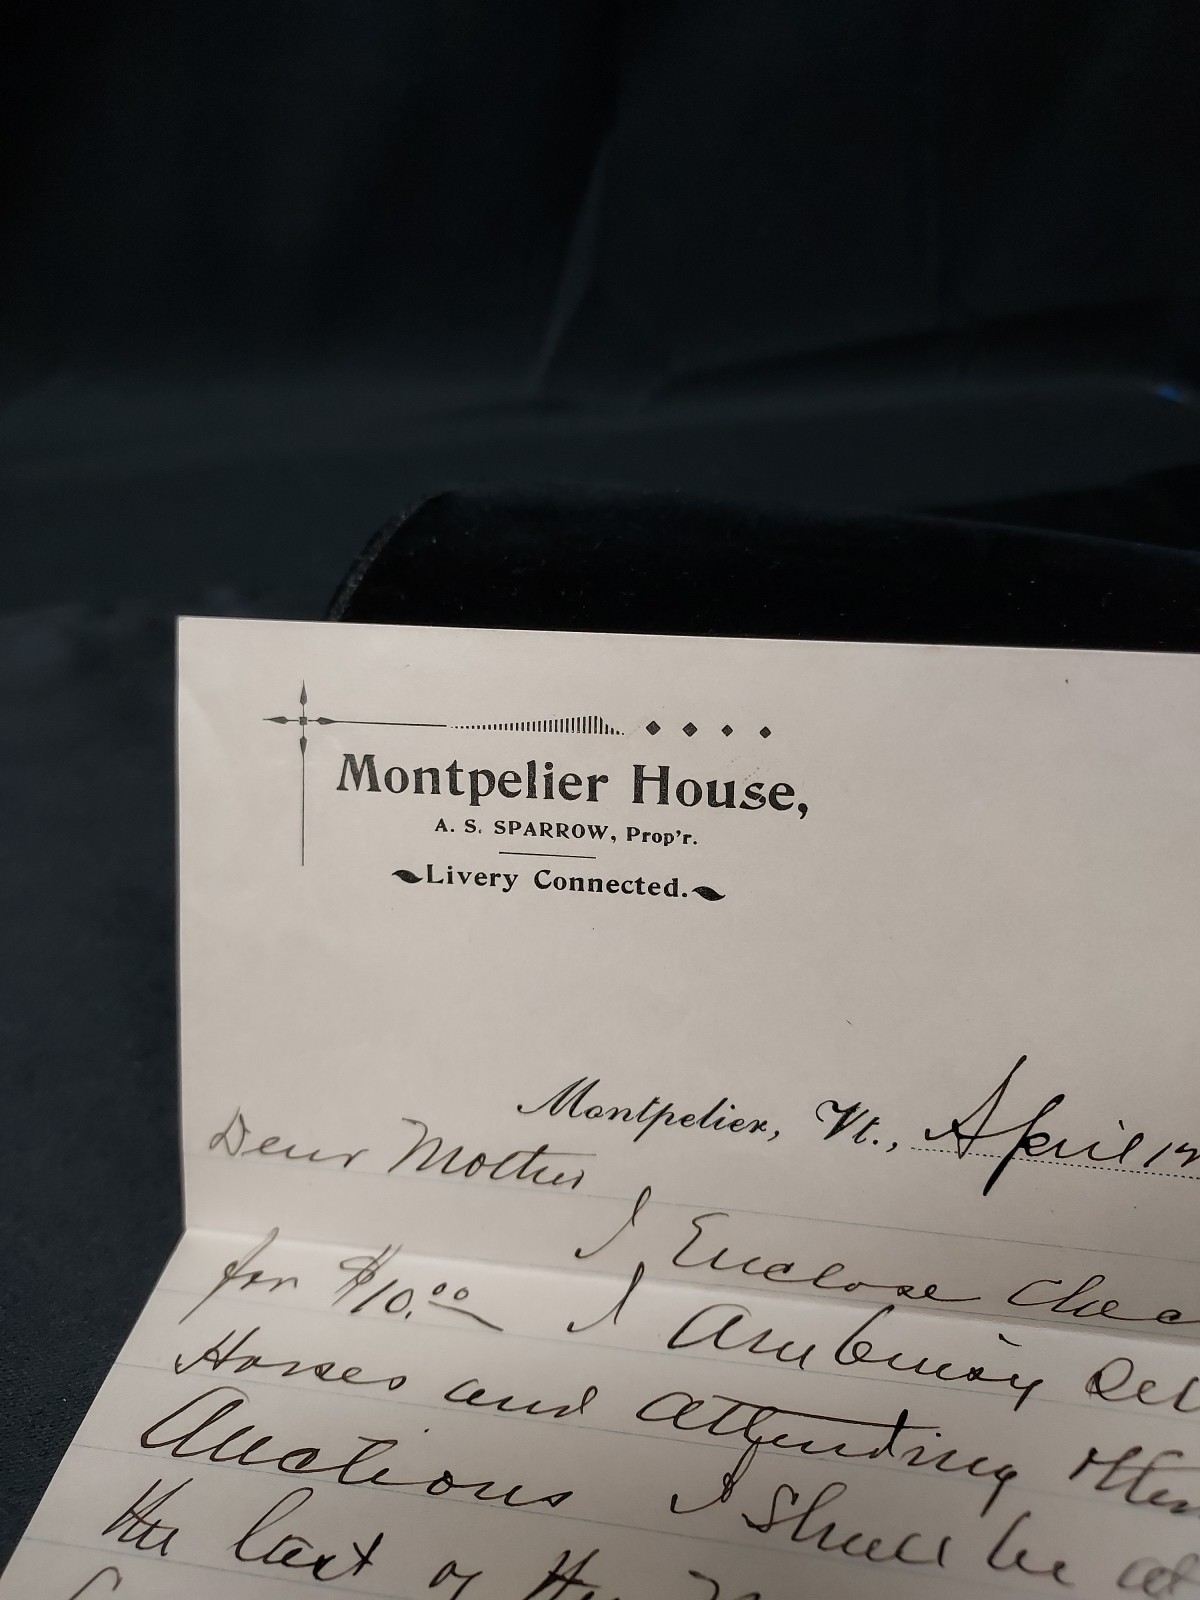 Montpelier House,
A. S. SPARROW, Prop'r.
Livery Connected.
Montpelier, Vt., April
Dear Mother
I Enclose
for $10.00 I Am busy
Horses and attending
Auctions I Shall be at
the last of the